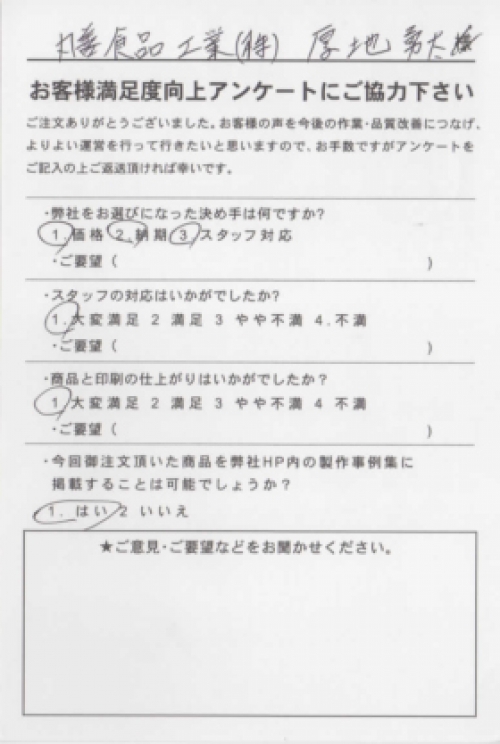 食品工業(株) 厚地 様
お客様満足度向上アンケートにご協力下さい
ご注文ありがとうございました。お客様の声を今後の作業・品質改善につなげ、
よりよい運営を行って行きたいと思いますので、お手数ですがアンケートを
ご記入の上ご返送頂ければ幸いです。
・弊社をお選びになった決め手は何ですか?
1.価格 2.納期 3.スタッフ対応
・ご要望( )
・スタッフの対応はいかがでしたか?
1.大変満足 2 満足 3 やや不満 4.不満
・ご要望( )
・商品と印刷の仕上がりはいかがでしたか?
1.大変満足 2 満足 3 やや不満 4 不満
・ご要望( )
・今回御注文頂いた商品を弊社HP内の製作事例集に
掲載することは可能でしょうか?
1. はい 2 いいえ
★ご意見・ご要望などをお聞かせください。